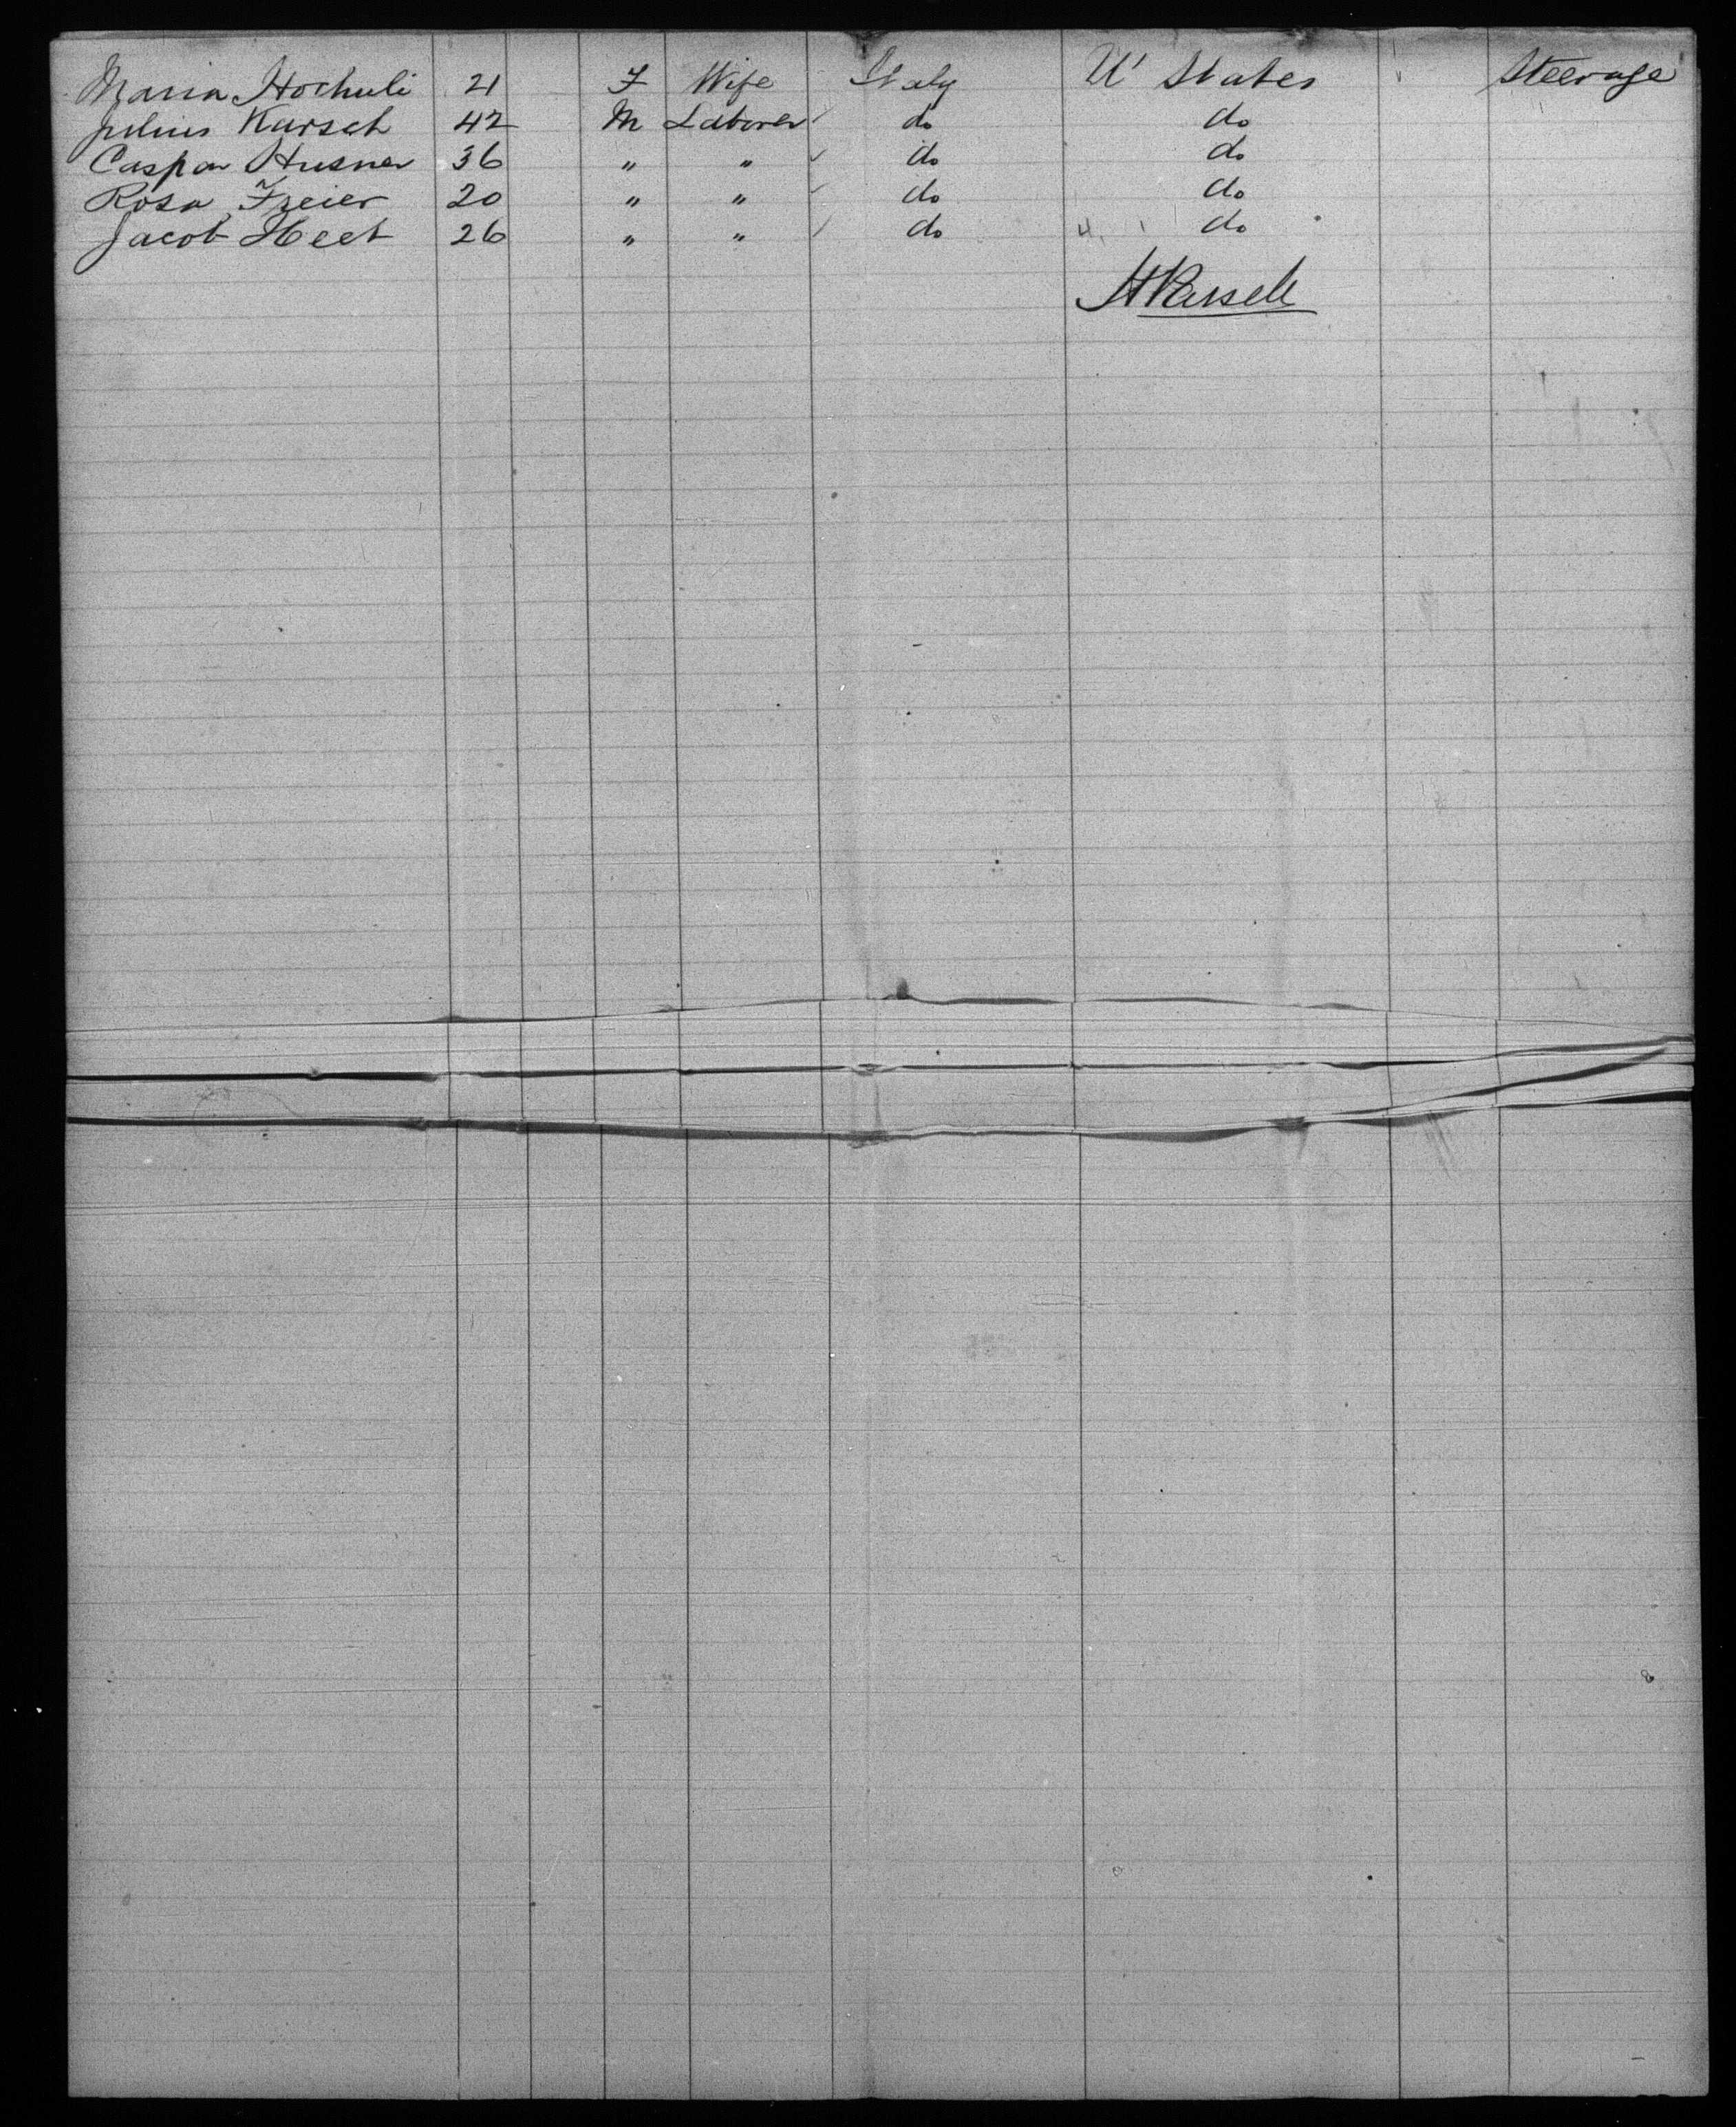 Maria Hochuli 21 F Wife Italy U' States Steerage
Julius Karsch 42 M Laborer do do
Caspar Husner 36 " " do do
Rosa Freier 20 " " do do
Jacob Heet 26 " " do do